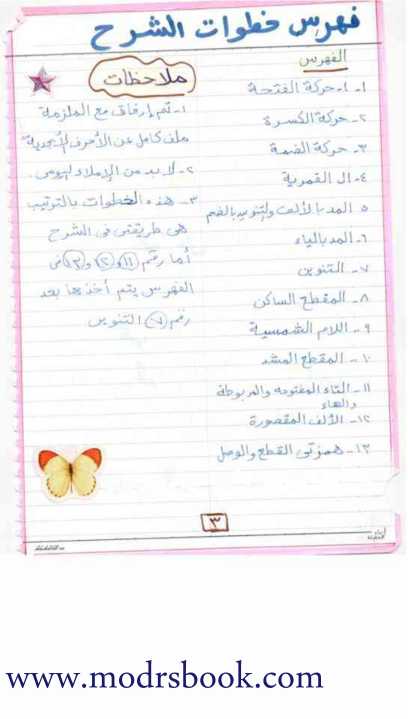 فهرس خطوات الشرح
الفهرس
١- أ- حركة الفتحة
٢- حركة الكسرة
٣- حركة الضمة
٤- ال القمرية
٥- المد بالألف والتنوين بالضم
٦- المد بالياء
٧- التنوين
٨- المقطع الساكن
٩- اللام الشمسية
١٠- المقطع المشد
١١- التاء المفتوحه والمربوطة
والهاء
١٢- الألف المقصورة
١٣- همزتى القطع والوصل
ملاحظات
١- تم إرفاق مع الملزمة
ملف كامل عن الأحرف الأبجدية
٢- لابد من الإملاء اليومى.
٣- هذه الخطوات بالترتيب
هى طريقتى فى الشرح
أما رقم ١١ و ٢ و ١٣ فى
الفهرس يتم أخذها بعد
رقم ٧ التنوين
٣
www.modrsbook.com